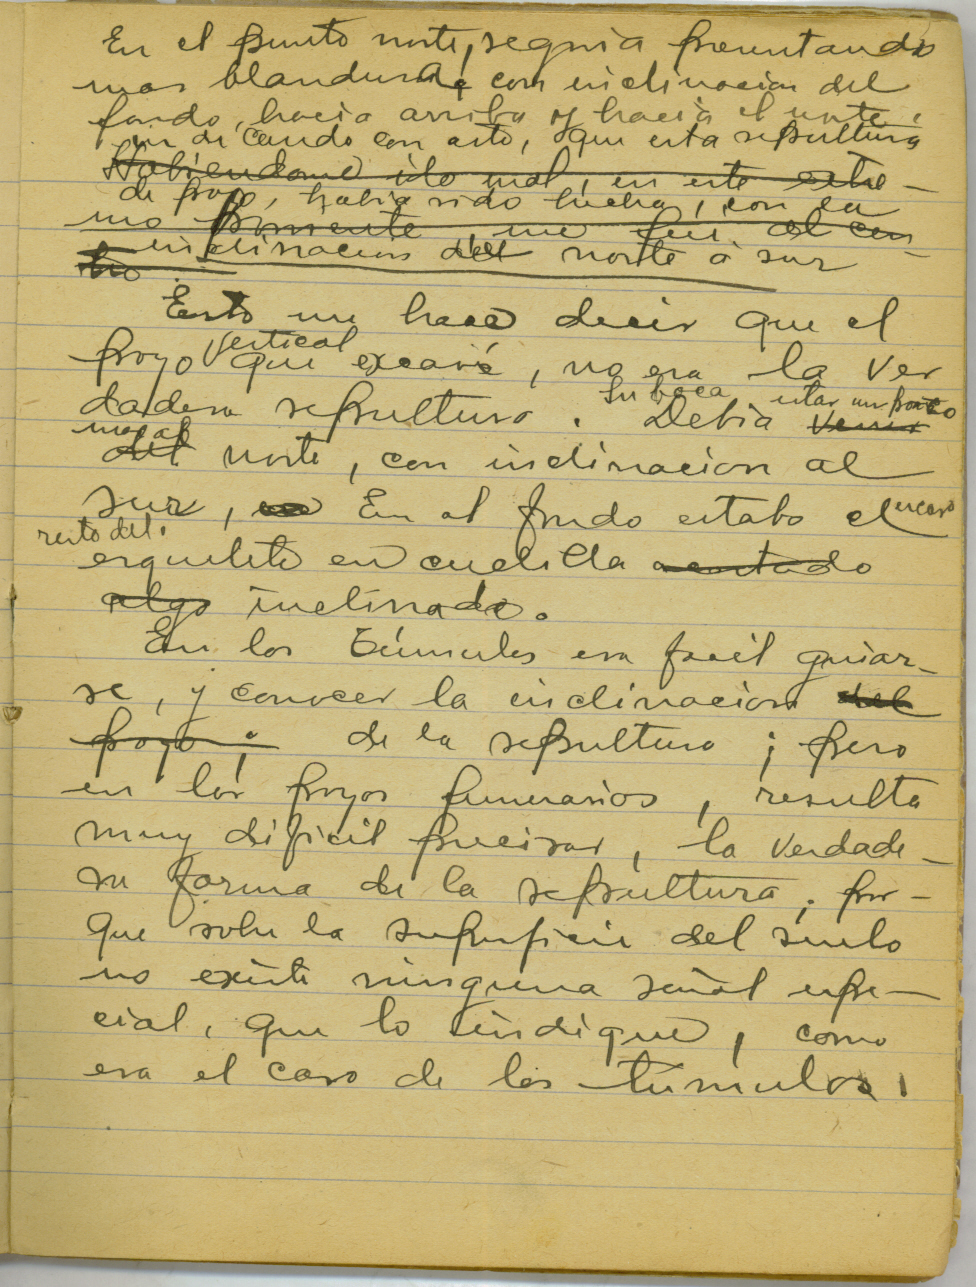 En el punto norte, seguia presentando
mas blandura, con inclinacion del
fondo, hacia arriba y hacia el norte,
indicando con esto, que esta sepultura
Habiendome ido mal, en este extre-
de pozo, habia sido hecha, con la
mo Poniente, me fui al cen-
inclinacion del norte a sur
tro
Esto me hace decir que el
pozo vertical que excavé, no era la ver
dadera sepultura. Su boca Debia venir estar un poco
mas al
del norte, con inclinacion al
sur, En el fondo estaba el escaso
resto del
esqueleto en cuclilla acostado
algo inclinado.
En los túmulos era facil guiar-
se, y conocer la inclinacion del
pozo; de la sepultura; pero
en los pozos funerarios, resulta
muy dificil precisar, la verdade-
ra forma de la sepultura, por-
que sobre la superficie del suelo
no existe ninguna señal espe-
cial, que lo indique, como
era el caso de los túmulos.